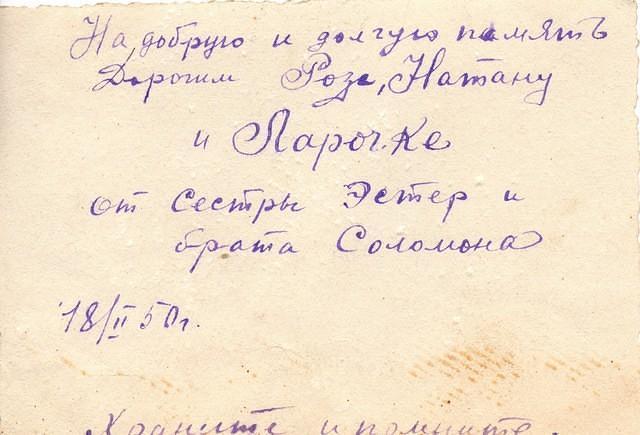 На добрую и долгую память
Дорогим Розе, Натану
и Ларочке
от Сестры Эстер и
брата Соломона
18/II 50г.
Храните и помните.